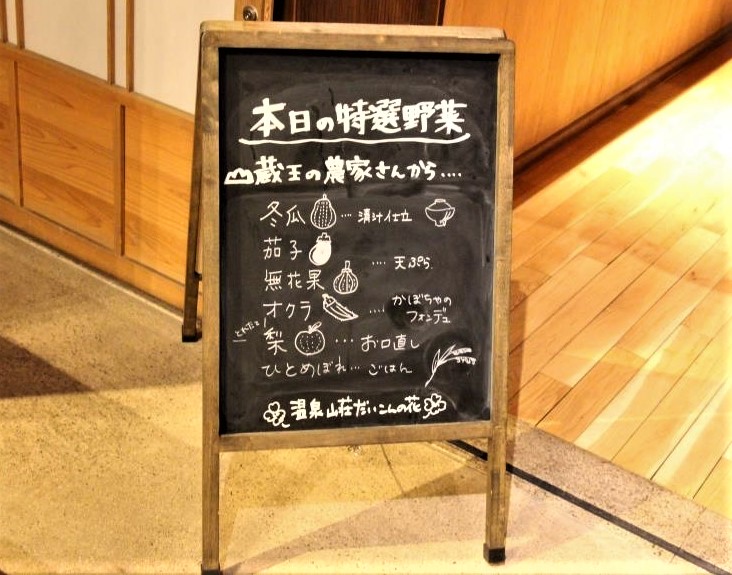 本日の特選野菜
蔵王の農家さんから‥‥
冬瓜 … 清汁仕立
茄子
無花果 ‥‥ 天ぷら
オクラ ‥‥ かぼちゃの
フォンデュ
梨 … お口直し
ひとめぼれ… ごはん
温泉山荘だいこんの花